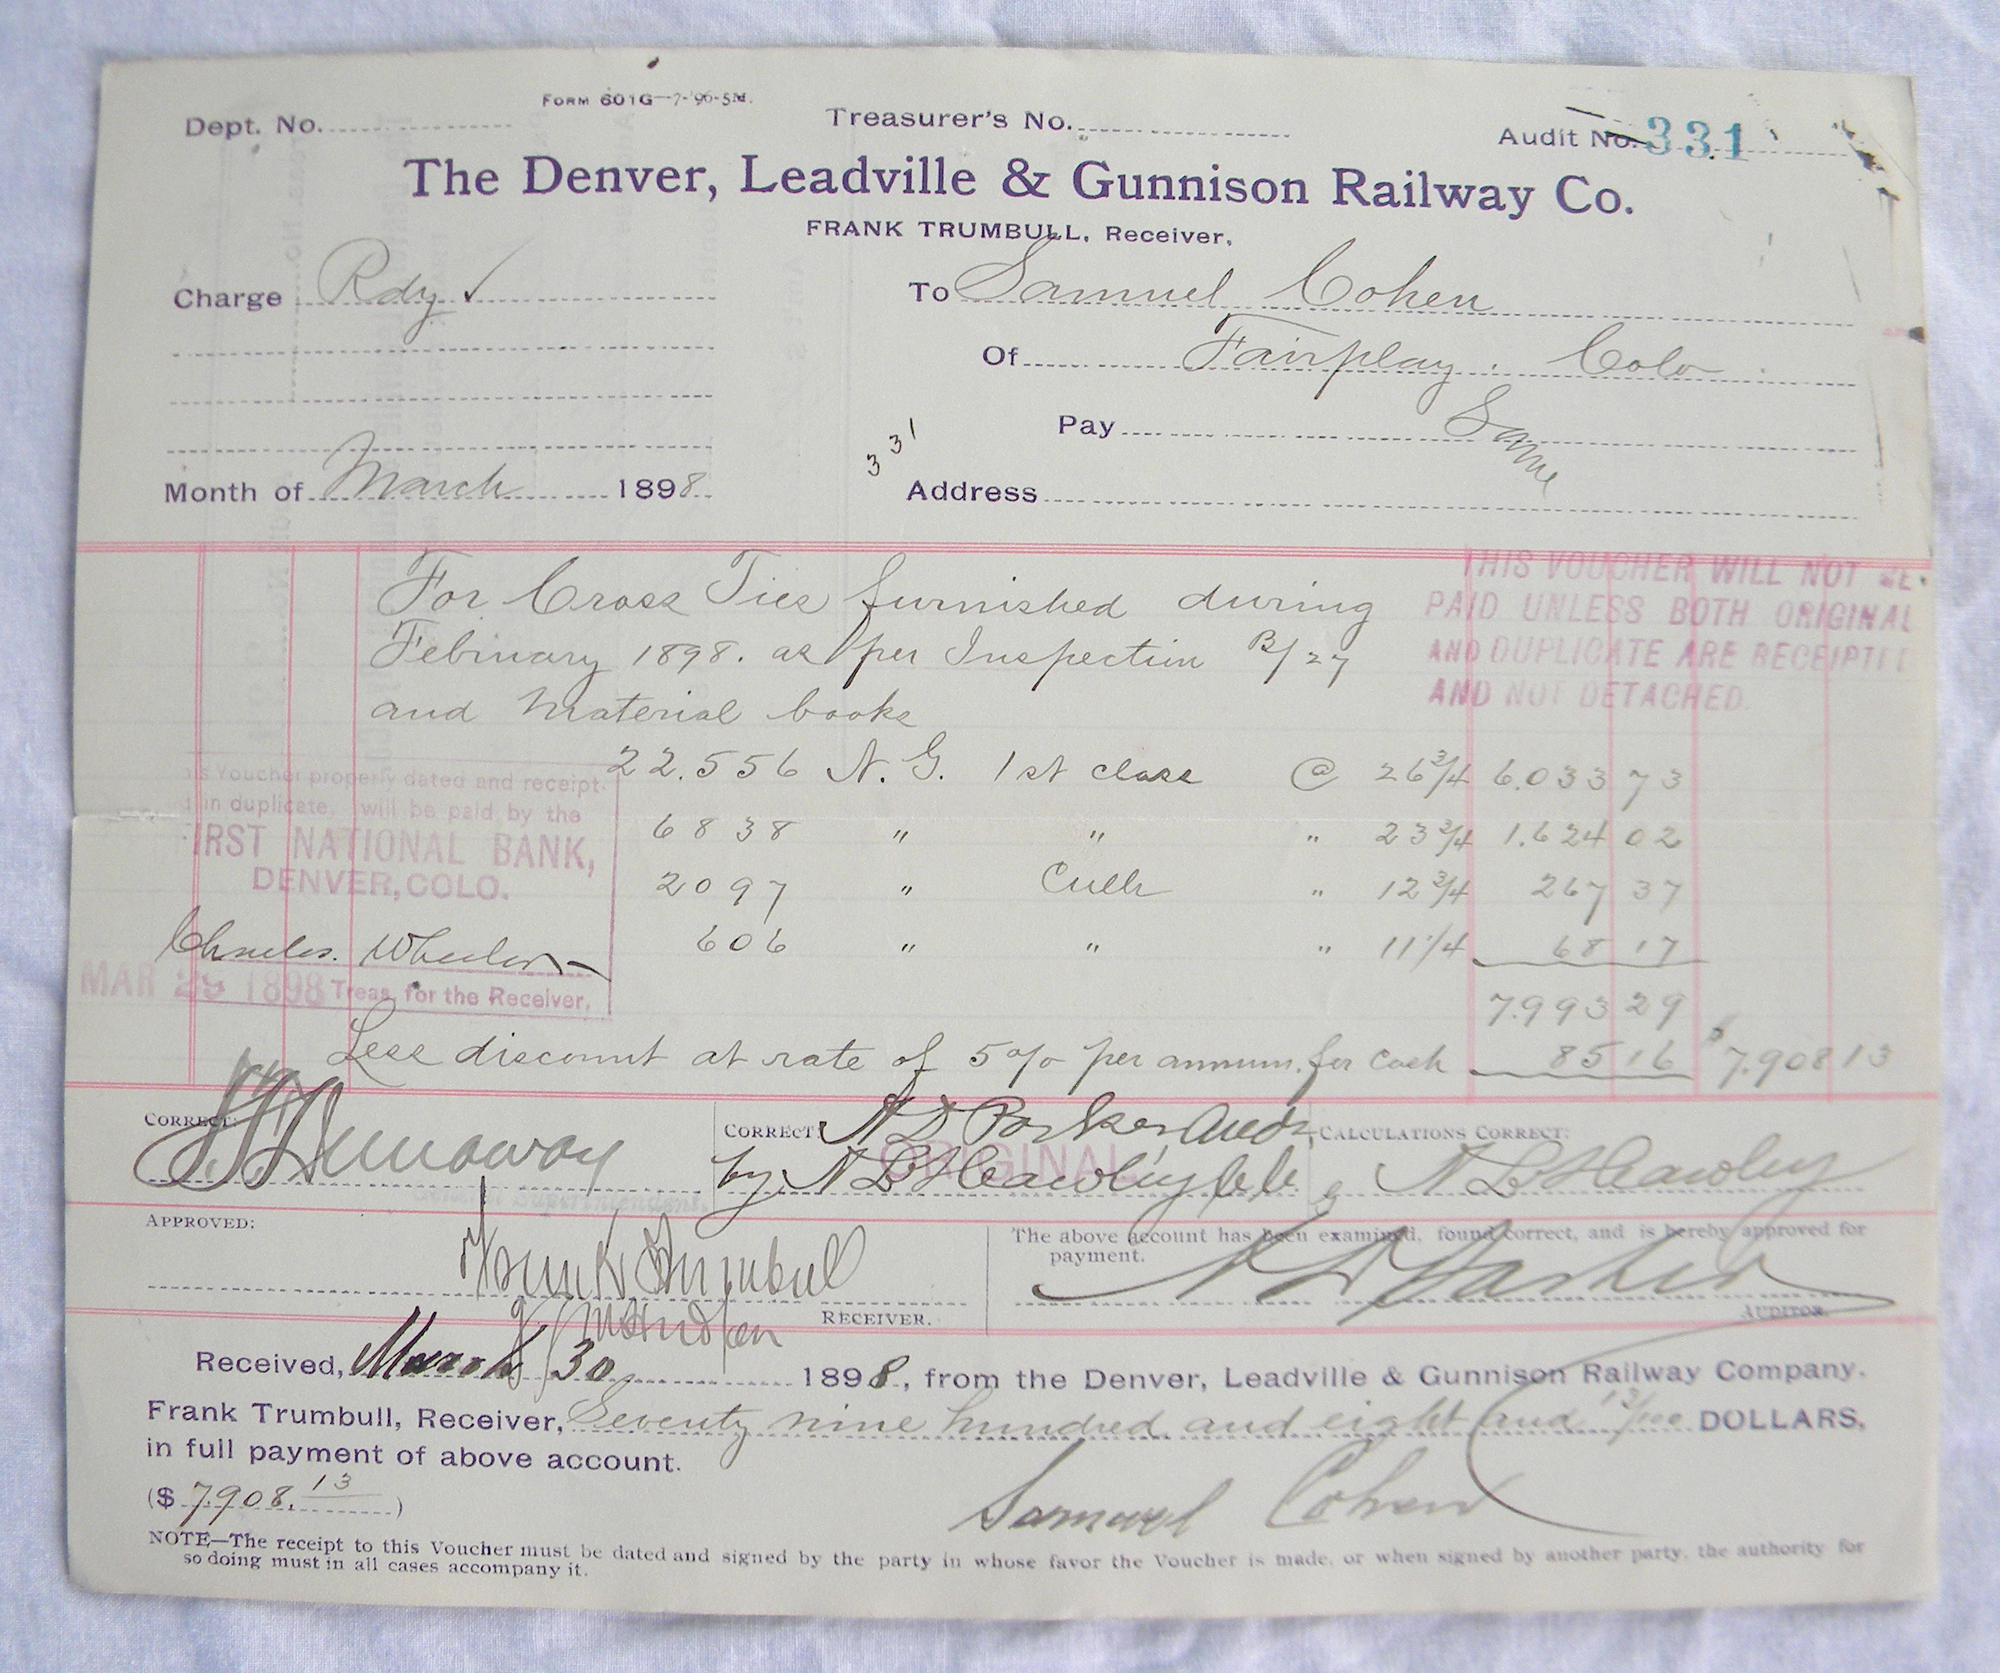 Form 601G—7-'96-5M.
Dept. No.
Treasurer's No.
Audit No. 331
The Denver, Leadville & Gunnison Railway Co.
FRANK TRUMBULL, Receiver,
Charge Rdy ✓
To Samuel Cohen
Of Fairplay. Colo
Pay Same
331
Month of March 1898
Address
For Cross Ties furnished during
February 1898. as per Inspection B/27
and Material books
THIS VOUCHER WILL NOT BE
PAID UNLESS BOTH ORIGINAL
AND DUPLICATE ARE RECEIPTE
AND NOT DETACHED.
22.556 N. G. 1st class @ 26 3/4 6.033 73
6838 " " " 23 3/4 1.624 02
2097 " Culls " 12 3/4 267 37
606 " " " 11 1/4 68 17
7.993 29
Less discount at rate of 5% per annum. for cash 85 16 $7.908 13
is Voucher properly dated and receipt-
d in duplicate, will be paid by the
IRST NATIONAL BANK,
DENVER, COLO.
Charles Wheeler
MAR 29 1898 Treas. for the Receiver.
Correct: Dunaway
General Superintendent.
Correct: A D Parker Aud.
ORIGINAL
by N L Hawley
Calculations Correct:
N L Hawley
Approved:
Frank Trumbull
Receiver.
The above account has been examined, found correct, and is hereby approved for
payment.
A D Parker
Auditor.
Received, March 30 1898, from the Denver, Leadville & Gunnison Railway Company.
Frank Trumbull, Receiver, Seventy nine hundred and eight and 13/100 DOLLARS,
in full payment of above account.
($ 7.908.13)
Samuel Cohen
NOTE—The receipt to this Voucher must be dated and signed by the party in whose favor the Voucher is made, or when signed by another party, the authority for
so doing must in all cases accompany it.